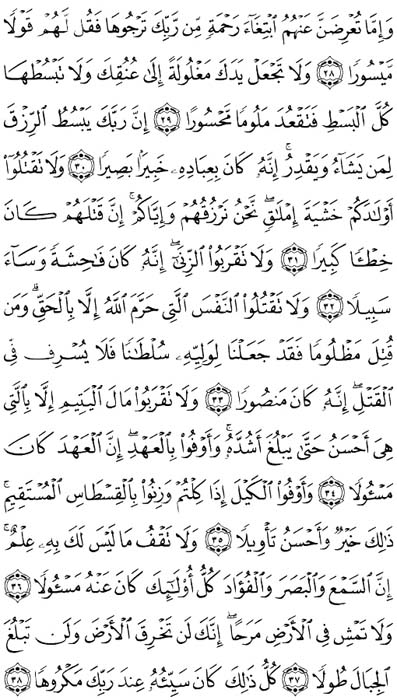 وَإِمَّا تُعْرِضَنَّ عَنْهُمُ ابْتِغَاءَ رَحْمَةٍ مِّن رَّبِّكَ تَرْجُوهَا فَقُل لَّهُمْ قَوْلًا
مَّيْسُورًا ٢٨ وَلَا تَجْعَلْ يَدَكَ مَغْلُولَةً إِلَىٰ عُنُقِكَ وَلَا تَبْسُطْهَا
كُلَّ الْبَسْطِ فَتَقْعُدَ مَلُومًا مَّحْسُورًا ٢٩ إِنَّ رَبَّكَ يَبْسُطُ الرِّزْقَ
لِمَن يَشَاءُ وَيَقْدِرُ ۚ إِنَّهُ كَانَ بِعِبَادِهِ خَبِيرًا بَصِيرًا ٣٠ وَلَا تَقْتُلُوا
أَوْلَادَكُمْ خَشْيَةَ إِمْلَاقٍ ۖ نَّحْنُ نَرْزُقُهُمْ وَإِيَّاكُمْ ۚ إِنَّ قَتْلَهُمْ كَانَ
خِطْئًا كَبِيرًا ٣١ وَلَا تَقْرَبُوا الزِّنَىٰ ۖ إِنَّهُ كَانَ فَاحِشَةً وَسَاءَ
سَبِيلًا ٣٢ وَلَا تَقْتُلُوا النَّفْسَ الَّتِي حَرَّمَ اللَّهُ إِلَّا بِالْحَقِّ ۗ وَمَن
قُتِلَ مَظْلُومًا فَقَدْ جَعَلْنَا لِوَلِيِّهِ سُلْطَانًا فَلَا يُسْرِف فِّي
الْقَتْلِ ۖ إِنَّهُ كَانَ مَنصُورًا ٣٣ وَلَا تَقْرَبُوا مَالَ الْيَتِيمِ إِلَّا بِالَّتِي
هِيَ أَحْسَنُ حَتَّىٰ يَبْلُغَ أَشُدَّهُ ۚ وَأَوْفُوا بِالْعَهْدِ ۖ إِنَّ الْعَهْدَ كَانَ
مَسْئُولًا ٣٤ وَأَوْفُوا الْكَيْلَ إِذَا كِلْتُمْ وَزِنُوا بِالْقِسْطَاسِ الْمُسْتَقِيمِ ۚ
ذَٰلِكَ خَيْرٌ وَأَحْسَنُ تَأْوِيلًا ٣٥ وَلَا تَقْفُ مَا لَيْسَ لَكَ بِهِ عِلْمٌ ۚ
إِنَّ السَّمْعَ وَالْبَصَرَ وَالْفُؤَادَ كُلُّ أُولَٰئِكَ كَانَ عَنْهُ مَسْئُولًا ٣٦
وَلَا تَمْشِ فِي الْأَرْضِ مَرَحًا ۖ إِنَّكَ لَن تَخْرِقَ الْأَرْضَ وَلَن تَبْلُغَ
الْجِبَالَ طُولًا ٣٧ كُلُّ ذَٰلِكَ كَانَ سَيِّئُهُ عِندَ رَبِّكَ مَكْرُوهًا ٣٨